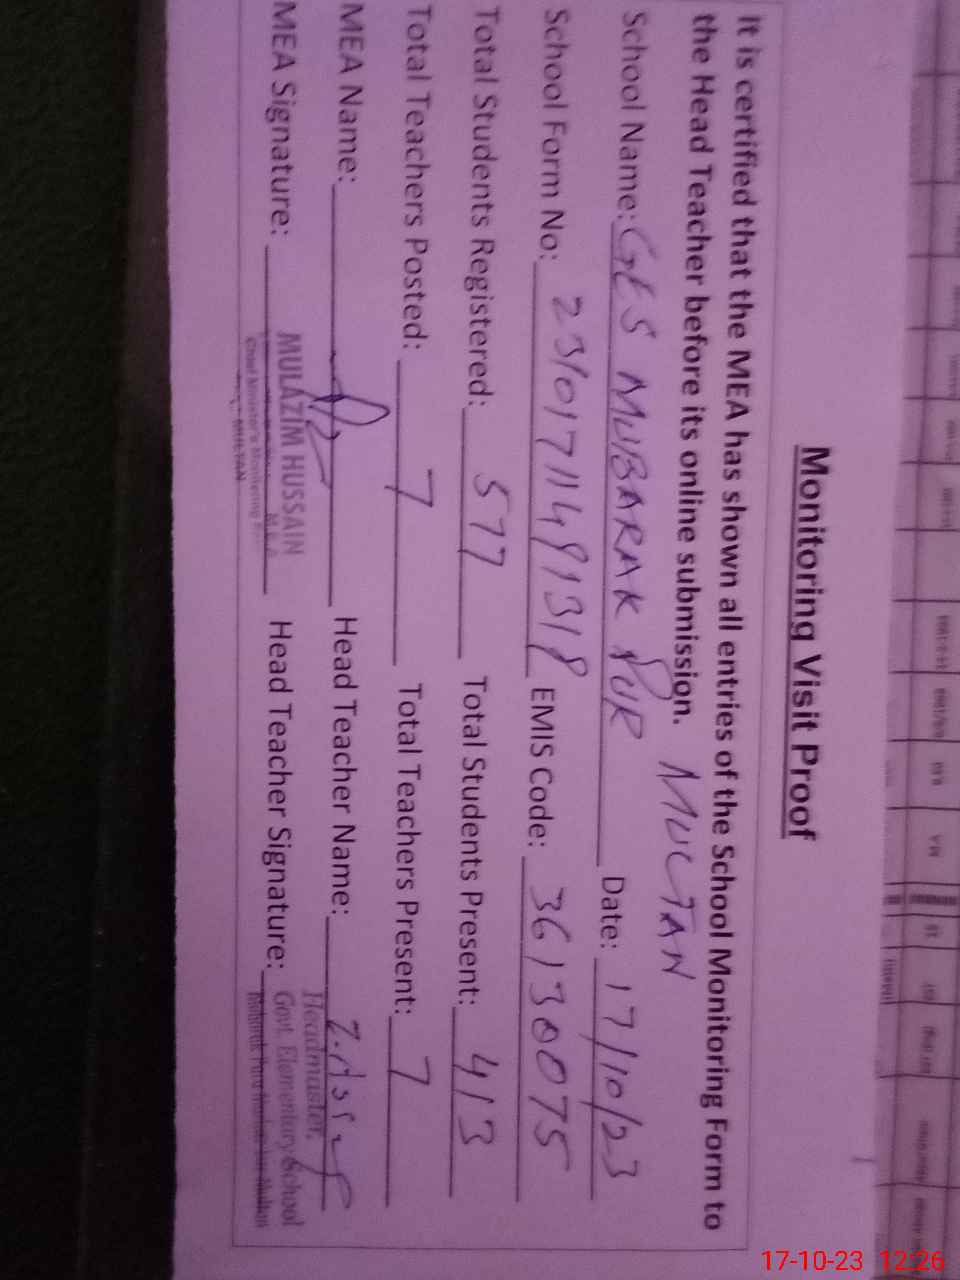 Monitoring Visit Proof
It is certified that the MEA has shown all entries of the School Monitoring Form to
the Head Teacher before its online submission. MULTAN
School Name: GES MUBARAK PUR Date: 17/10/23
School Form No: EMIS Code: 36130075
Total Students Registered: 577 Total Students Present: 413
Total Teachers Posted: 7 Total Teachers Present: 7
MEA Name: Head Teacher Name:
MEA Signature: Head Teacher Signature:
MULAZIM HUSSAIN
M.E.A
Chief Minister's Monitoring
MULTAN
Headmaster,
Govt. Elementary School
17-10-23 12:26